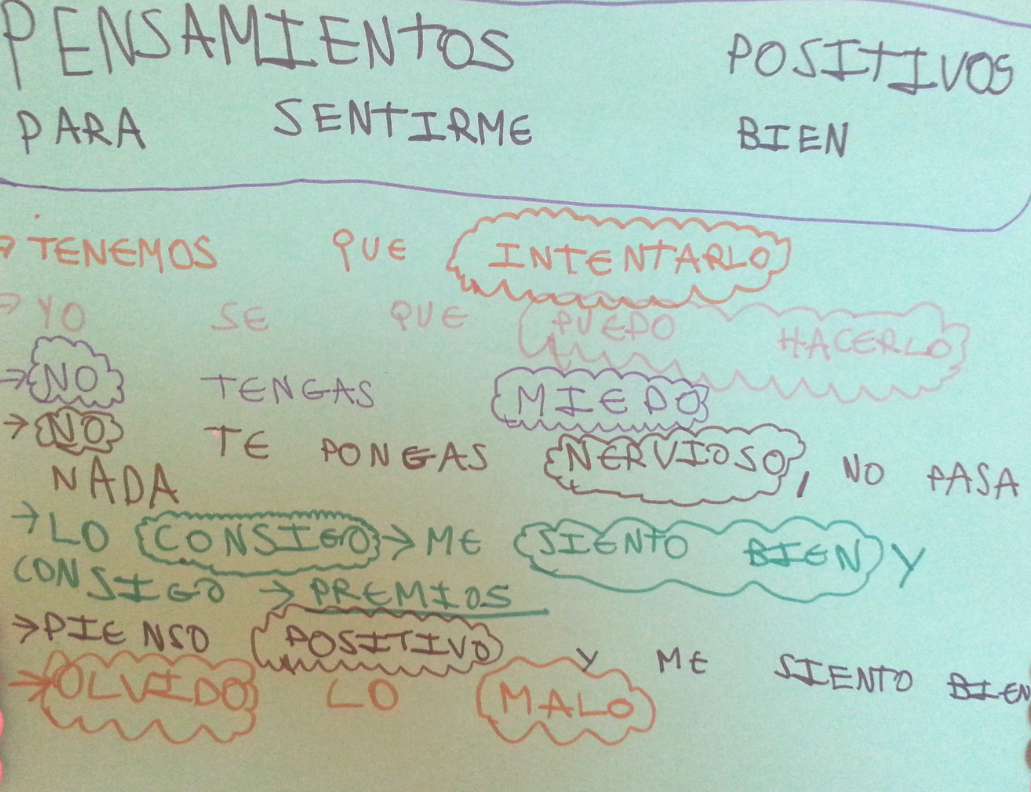 PENSAMIENTOS POSITIVOS
PARA SENTIRME BIEN
→ TENEMOS QUE INTENTARLO
→ YO SE QUE PUEDO HACERLO
→ NO TENGAS MIEDO
→ NO TE PONGAS NERVIOSO, NO PASA
NADA
→ LO CONSIGO → ME SIENTO BIEN Y
CONSIGO → PREMIOS
→ PIENSO POSITIVO Y ME SIENTO BIEN
→ OLVIDO LO MALO